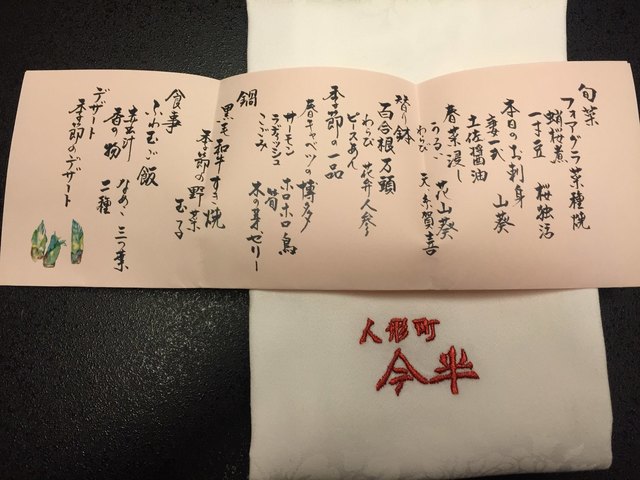 旬菜
フォアグラ菜種焼
蛸桜煮
一寸豆 桜独活
本日のお刺身
妻一式 山葵
土佐醤油
春菜浸し
うるい 花山葵
わらび 天 糸賀喜
替り鉢
百合根万頭
わらび 花弁人参
ピースあん
季節の一品
春キャベツの博多
サーモン ホロホロ鳥
ラディッシュ 筍
こごみ 木の芽ゼリー
鍋
黒毛和牛すき焼
季節の野菜
玉子
食事
ふわ玉ご飯
赤出汁 なめこ 三つ葉
香の物 二種
デザート
季節のデザート
人形町
今半